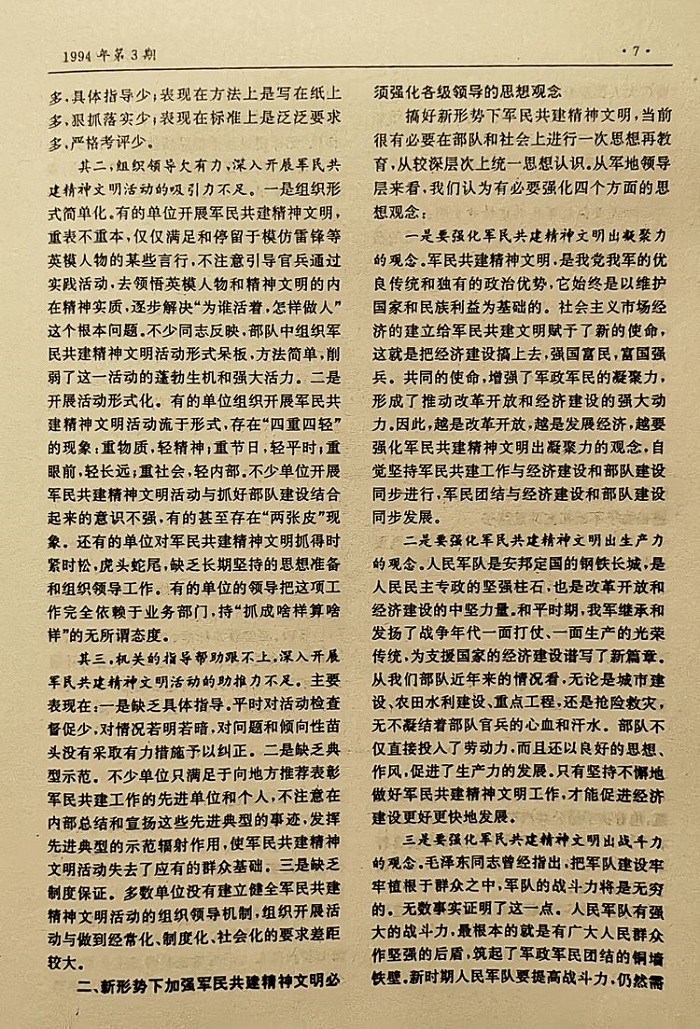 1994年第3期
·7·
多,具体指导少;表现在方法上是写在纸上
多,狠抓落实少;表现在标准上是泛泛要求
多,严格考评少。
其二,组织领导欠有力,深入开展军民共
建精神文明活动的吸引力不足。一是组织形
式简单化。有的单位开展军民共建精神文明,
重表不重本,仅仅满足和停留于模仿雷锋等
英模人物的某些言行,不注意引导官兵通过
实践活动,去领悟英模人物和精神文明的内
在精神实质,逐步解决“为谁活着,怎样做人”
这个根本问题。不少同志反映,部队中组织军
民共建精神文明活动形式呆板,方法简单,削
弱了这一活动的蓬勃生机和强大活力。二是
开展活动形式化。有的单位组织开展军民共
建精神文明活动流于形式,存在“四重四轻”
的现象:重物质,轻精神;重节日,轻平时;重
眼前,轻长远;重社会,轻内部。不少单位开展
军民共建精神文明活动与抓好部队建设结合
起来的意识不强,有的甚至存在“两张皮”现
象。还有的单位对军民共建精神文明抓得时
紧时松,虎头蛇尾,缺乏长期坚持的思想准备
和组织领导工作。有的单位的领导把这项工
作完全依赖于业务部门,持“抓成啥样算啥
样”的无所谓态度。
其三,机关的指导帮助跟不上,深入开展
军民共建精神文明活动的助推力不足。主要
表现在:一是缺乏具体指导。平时对活动检查
督促少,对情况若明若暗,对问题和倾向性苗
头没有采取有力措施予以纠正。二是缺乏典
型示范。不少单位只满足于向地方推荐表彰
军民共建工作的先进单位和个人,不注意在
内部总结和宣扬这些先进典型的事迹,发挥
先进典型的示范辐射作用,使军民共建精神
文明活动失去了应有的群众基础。三是缺乏
制度保证。多数单位没有建立健全军民共建
精神文明活动的组织领导机制,组织开展活
动与做到经常化、制度化、社会化的要求差距
较大。
二、新形势下加强军民共建精神文明必
须强化各级领导的思想观念
搞好新形势下军民共建精神文明,当前
很有必要在部队和社会上进行一次思想再教
育,从较深层次上统一思想认识。从军地领导
层来看,我们认为有必要强化四个方面的思
想观念:
一是要强化军民共建精神文明出凝聚力
的观念。军民共建精神文明,是我党我军的优
良传统和独有的政治优势,它始终是以维护
国家和民族利益为基础的。社会主义市场经
济的建立给军民共建文明赋予了新的使命,
这就是把经济建设搞上去,强国富民,富国强
兵。共同的使命,增强了军政军民的凝聚力,
形成了推动改革开放和经济建设的强大动
力。因此,越是改革开放,越是发展经济,越要
强化军民共建精神文明出凝聚力的观念,自
觉坚持军民共建工作与经济建设和部队建设
同步进行,军民团结与经济建设和部队建设
同步发展。
二是要强化军民共建精神文明出生产力
的观念。人民军队是安邦定国的钢铁长城,是
人民民主专政的坚强柱石,也是改革开放和
经济建设的中坚力量。和平时期,我军继承和
发扬了战争年代一面打仗、一面生产的光荣
传统,为支援国家的经济建设谱写了新篇章。
从我们部队近年来的情况看,无论是城市建
设、农田水利建设、重点工程,还是抢险救灾,
无不凝结着部队官兵的心血和汗水。部队不
仅直接投入了劳动力,而且还以良好的思想、
作风,促进了生产力的发展。只有坚持不懈地
做好军民共建精神文明工作,才能促进经济
建设更好更快地发展。
三是要强化军民共建精神文明出战斗力
的观念。毛泽东同志曾经指出,把军队建设牢
牢植根于群众之中,军队的战斗力将是无穷
的。无数事实证明了这一点。人民军队有强
大的战斗力,最根本的就是有广大人民群众
作坚强的后盾,筑起了军政军民团结的铜墙
铁壁。新时期人民军队要提高战斗力,仍然需